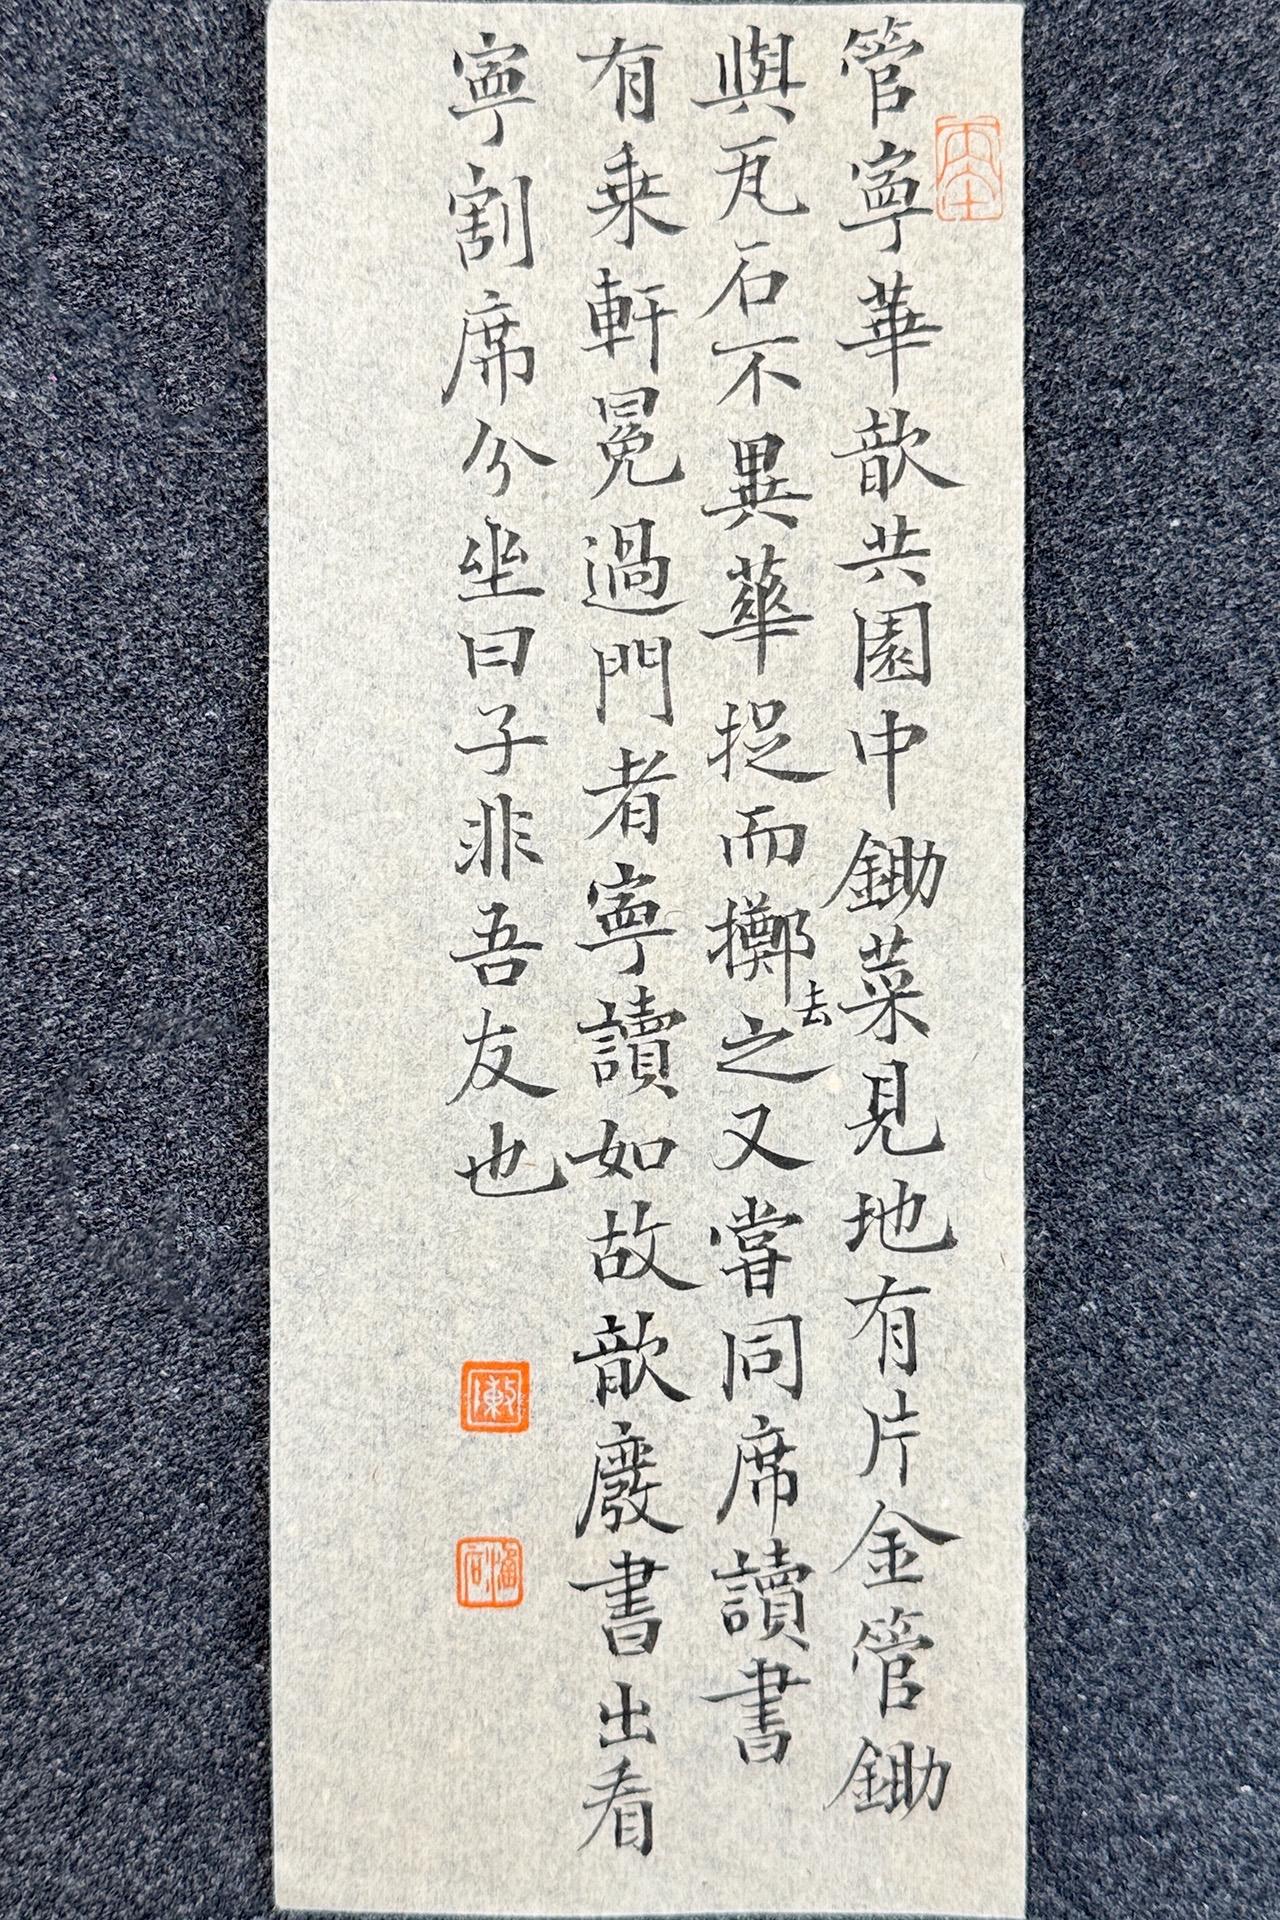 管寧華歆共園中鋤菜見地有片金管鋤
與瓦石不異華捉而擲去之又嘗同席讀書
有乘軒冕過門者寧讀如故歆廢書出看
寧割席分坐曰子非吾友也